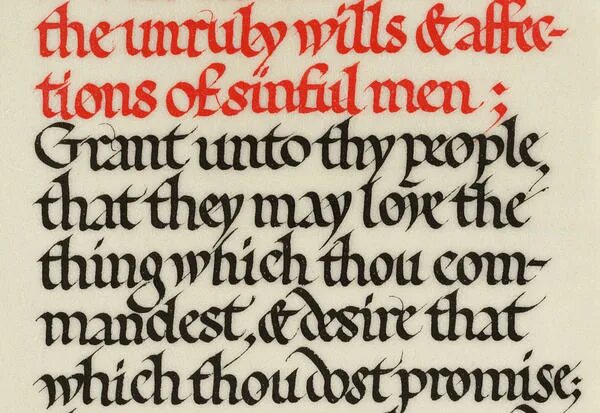 the unruly wills & affec-
tions of sinful men ;
Grant unto thy people,
that they may love the
thing which thou com-
mandest, & desire that
which thou dost promise;